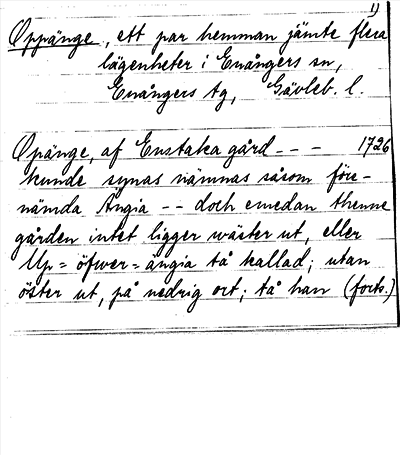 1)
Öppänge, ett par hemman jämte flera
lägenheter i Enångers sn,
Enångers tg, Gävleb. l.
Öpänge, af Enstaka gård - - - 1726
kunde synas nämnas såsom före-
nämda Ängia - - doch emedan thenne
gården intet ligger wäster ut, eller
Up= öfwer= ängia tå kallad; utan
öster ut, på nedrig ort; tå han (forts.)